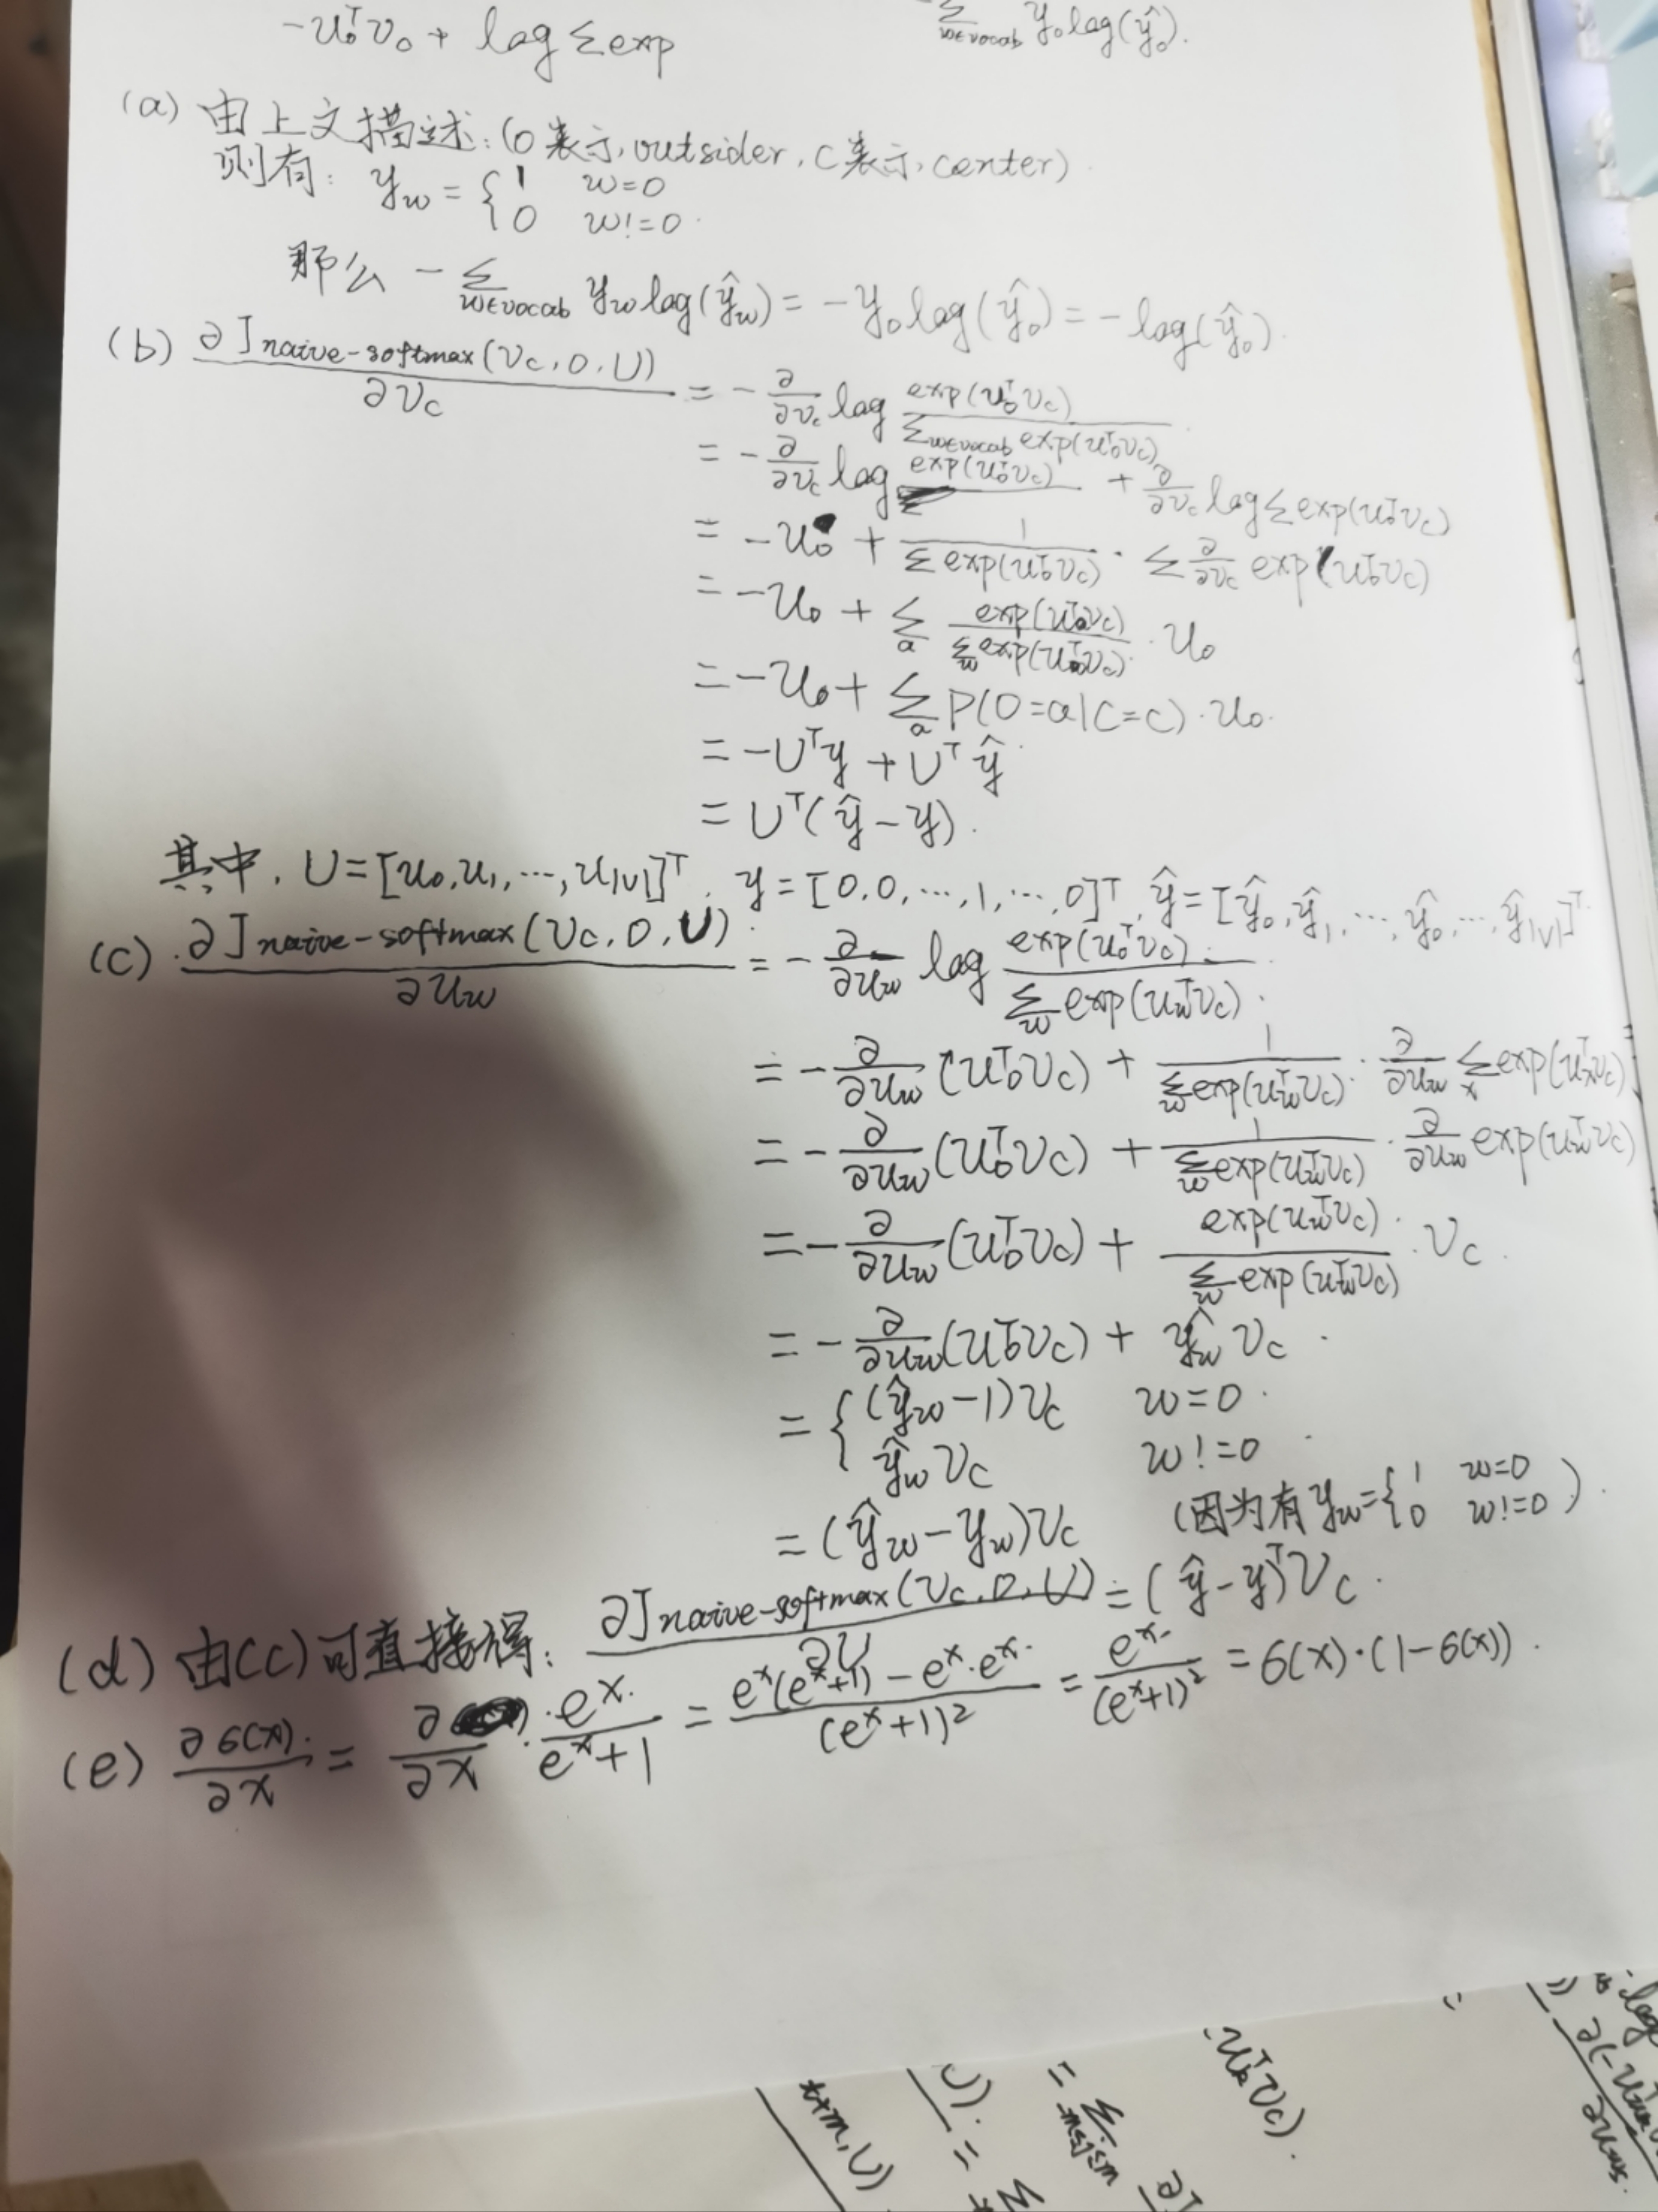 -u₀ᵀv₀ + log Σexp
Σ_{w∈vocab} y₀ log(ŷ₀).
(a) 由上文描述:(o表示outsider, c表示center)
则有: y_w = { 1 w=0
0 w!=0
那么 -Σ_{w∈vocab} y_w log(ŷ_w) = -y₀ log(ŷ₀) = -log(ŷ₀).
(b) ∂J_{naive-softmax}(v_c, o, U) / ∂v_c = -∂/∂v_c log exp(u₀ᵀv_c) / Σ_{w∈vocab} exp(u₀ᵀv_c)
= -∂/∂v_c log exp(u₀ᵀv_c) + ∂/∂v_c log Σ exp(u₀ᵀv_c)
= -u₀ + 1 / Σ exp(u₀ᵀv_c) · Σ ∂/∂v_c exp(u₀ᵀv_c)
= -u₀ + Σ_a exp(u₀ᵀv_c) / Σ_w exp(u₀ᵀv_c) · u₀
= -u₀ + Σ_a P(O=a|C=c) · u₀.
= -Uᵀy + Uᵀŷ
= Uᵀ(ŷ-y).
其中, U=[u₀,u₁,…,u_{|v|}]ᵀ, y=[0,0,…,1,…,0]ᵀ, ŷ=[ŷ₀,ŷ₁,…,ŷ₀,…,ŷ_{|v|}]ᵀ.
(c) ∂J_{naive-softmax}(v_c, o, U) / ∂u_w = -∂/∂u_w log exp(u₀ᵀv_c) / Σ_w exp(u_wᵀv_c).
= -∂/∂u_w (u₀ᵀv_c) + 1 / Σ_w exp(u_wᵀv_c) · ∂/∂u_w Σ_x exp(u_xᵀv_c)
= -∂/∂u_w (u₀ᵀv_c) + 1 / Σ_w exp(u_wᵀv_c) · ∂/∂u_w exp(u_wᵀv_c)
= -∂/∂u_w (u₀ᵀv_c) + exp(u_wᵀv_c) / Σ_w exp(u_wᵀv_c) · v_c
= -∂/∂u_w (u₀ᵀv_c) + ŷ_w v_c
= { (ŷ_w-1)v_c w=0
ŷ_w v_c w!=0
= (ŷ_w-y_w)v_c (因为有 y_w={ 1 w=0
0 w!=0 ).
(d) 由(c)可直接得: ∂J_{naive-softmax}(v_c, o, U) / ∂U = (ŷ-y)ᵀv_c.
(e) ∂б(x) / ∂x = ∂/∂x · eˣ / eˣ+1 = eˣ(eˣ+1) - eˣ·eˣ / (eˣ+1)² = eˣ / (eˣ+1)² = б(x)·(1-б(x)).